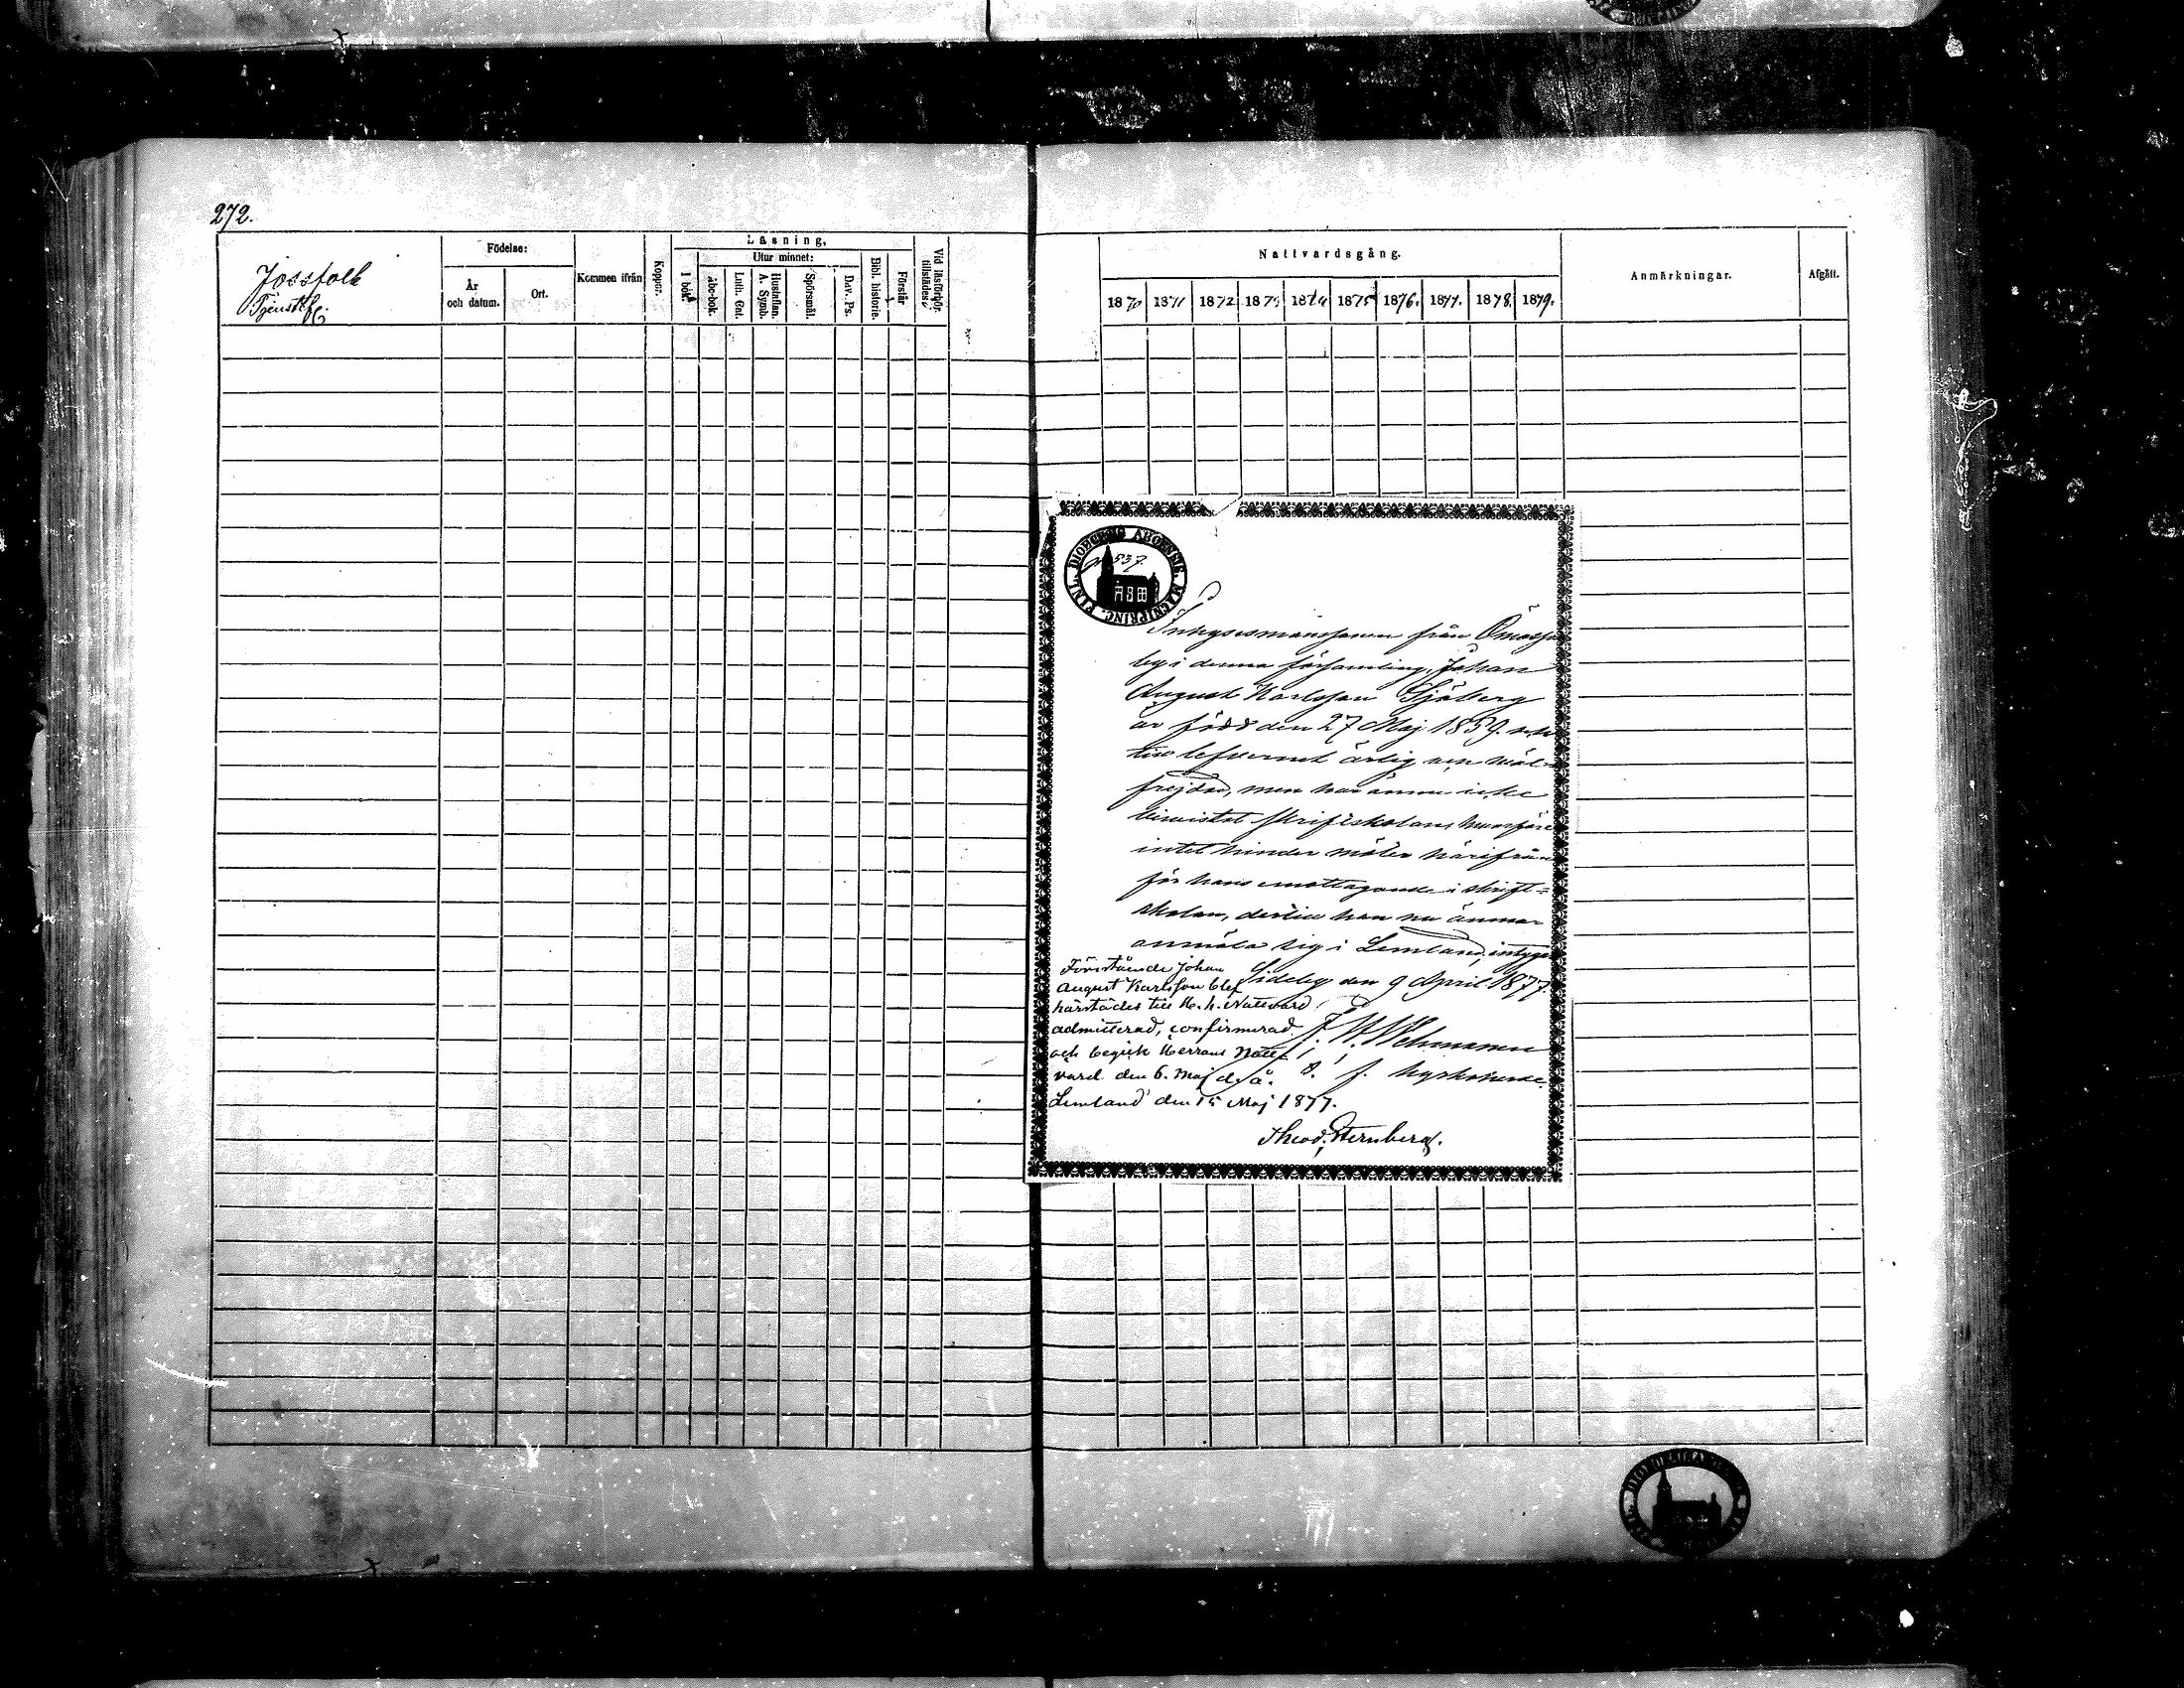 272.
Jossfolk
Tjenstf.
Födelse:
År
och datum.
Ort.
Kommen ifrån
Koppor.
Läsning,
Utur minnet:
I bok.
Abc-bok.
Luth. Cat.
Hustaflan.
A. Symb.
Spörsmål.
Dav. Ps.
Bibl. historie.
Förstår
Vid läsförhör.
tillstädes.
Nattvardsgång.
1870 1871 1872 1873 1874 1875 1876. 1877. 1878. 1879.
Anmärkningar.
Afgått.
från
by i denna församling, Johan
August Karlsson Sjöberg
är född den 27 Maj 1859.
till lefvernet ärlig och väl-
frejdad, men har ännu icke
bivistat skriftskolan, hvarföre
intet hinder möter härifrån
för hans emottagande i skrift-
skolan, dertill han nu ämnar
anmäla sig i Lemland, intygar
den 9 April 1877.
Förestående Johan
August Karlsson blef
härstädes till H. h. Nattvard
admitterad, confirmerad
och begick Herrans Natt-
vard den 6. Maj d. å.
Lemland den 15 Maj 1877.
Theod. Sternberg.